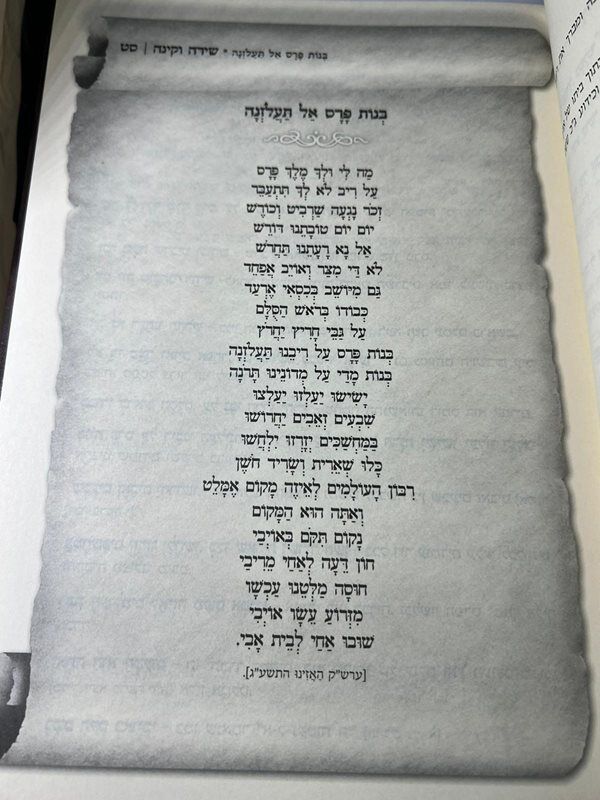 בְּנוֹת פָּרָס אַל תַּעֲלֹזְנָה * שירה וקינה | סט
בְּנוֹת פָּרָס אַל תַּעֲלֹזְנָה
מַה לִּי וּלְךָ מֶלֶךְ פָּרָס
עַל רִיב לֹא לְךָ תִּתְעַבֵּר
זְכֹר נָגְעָה שַׁרְבִיט וְכוֹרֶשׁ
יוֹם יוֹם טוֹבָתֵנוּ דּוֹרֵשׁ
אַל נָא רָעָתֵנוּ תַּחֲרֹשׁ
לֹא דַּי מִצַּר וְאוֹיֵב אֲפַחֵד
גַּם מִיּוֹשֵׁב בְּכִסְאִי אֶרְעַד
כְּבוֹדוֹ בְּרֹאשׁ הַסֻּלָּם
עַל גַּבֵּי חָרִיץ יַחֲרֹץ
בְּנוֹת פָּרָס עַל רִיבֵנוּ תַּעֲלֹזְנָה
בְּנוֹת מָדַי עַל מְדוֹנֵינוּ תָּרֹנָּה
יָשִׂישׂוּ יַעַלְזוּ יַעַלְצוּ
שִׁבְעִים זְאֵבִים יַחֲרוֹשׁוּ
בַּמַּחְשַׁכִּים יְזָרְזוּ יִלְחֲשׁוּ
כָּלוּ שְׁאֵרִית וְשָׂרִיד חֹשֶׁן
רִבּוֹן הָעוֹלָמִים לְאֵיזֶה מָקוֹם אֶמָּלֵט
וְאַתָּה הוּא הַמָּקוֹם
נָקוֹם תִּקֹּם בְּאוֹיְבַי
חוֹן דֵּעָה לְאַחַי מְרִיבַי
חוּסָה מַלְּטֵנוּ עַכְשָׁו
מִזְּרוֹעַ עֵשָׂו אוֹיְבִי
שׁוּבוּ אַחַי לְבֵית אָבִי.
[ערש"ק הַאֲזִינוּ התשע"ג].